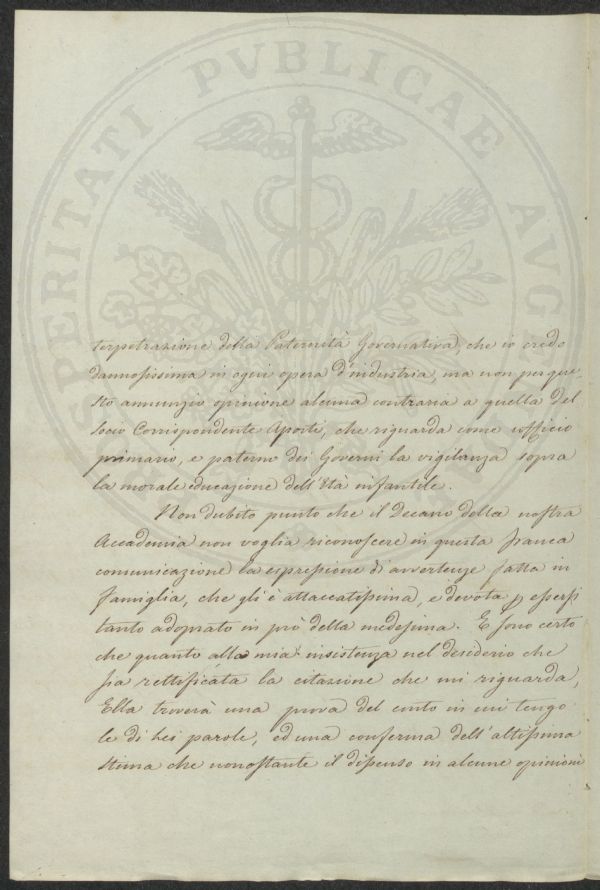 PROSPERITATI PVBLICAE AVGENDAE
terpetrazione della Paternità Governativa, che io credo
dannosissima in ogni opera d'industria, ma non per que-
sto annunzio opinione alcuna contraria a quella del
Socio Corrispondente Aporti, che riguarda come ufficio
primario, e paterno dei Governi la vigilanza sopra
la morale educazione dell'Età infantile.
Non dubito punto che il Decano della nostra
Accademia non voglia riconoscere in questa franca
comunicazione la espressione di avvertenze fatta in
famiglia, che gli è attaccatissima, e devota p essersi
tanto adoprato in prò della medesima. E sono certo
che quanto alla mia insistenza nel desiderio che
sia rettificata la citazione che mi riguarda,
Ella troverà una prova del conto in cui tengo
le di Lei parole, ed una conferma dell'altissima
stima che nonostante il dissenso in alcune opinioni